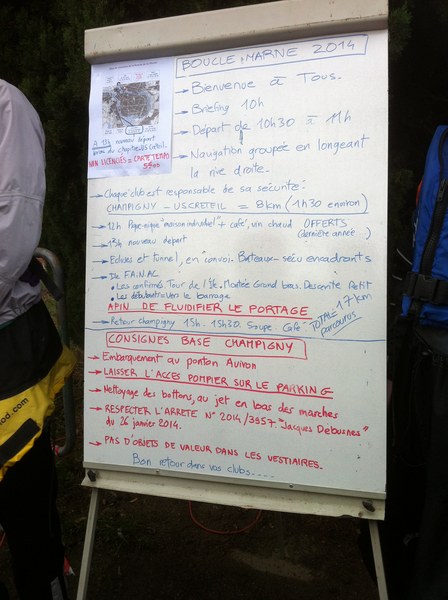 BOUCLE MARNE 2014
→ Bienvenue à Tous.
→ Briefing 10h
→ Départ de 10h30 à 11h
→ Navigation groupée en longeant
la rive droite.
A 13h nouveau départ
NON LICENCIÉS = CARTE TEMPS
→ Chaque club est responsable de sa sécurité :
CHAMPIGNY - US CRETEIL = 8 km (1h30 environ)
→ 12h Pique-nique "maison individuel" + café, vin chaud OFFERTS
(dernière année)
→ 13h nouveau départ
→ Ecluses et tunnel, en convoi. Bateaux-sécu encadrants
→ Du FA.NAC
• Les confirmés. Tour de l'île. Montée Grand bras. Descente Petit
• Les débutants vers le barrage
AFIN DE FLUIDIFIER LE PORTAGE
→ Retour Champigny 15h - 15h30. Soupe Café
TOTAL 17 km
parcourus
CONSIGNES BASE CHAMPIGNY
→ Embarquement au ponton Aviron
→ LAISSER L'ACCES POMPIER SUR LE PARKING
→ Nettoyage des bottons, au jet en bas des marches
→ RESPECTER L'ARRETE N° 2014/3357 "Jacques
du 26 janvier 2014.
→ PAS D'OBJETS DE VALEUR DANS LES VESTIAIRES.
Bon retour dans vos clubs....
od.com